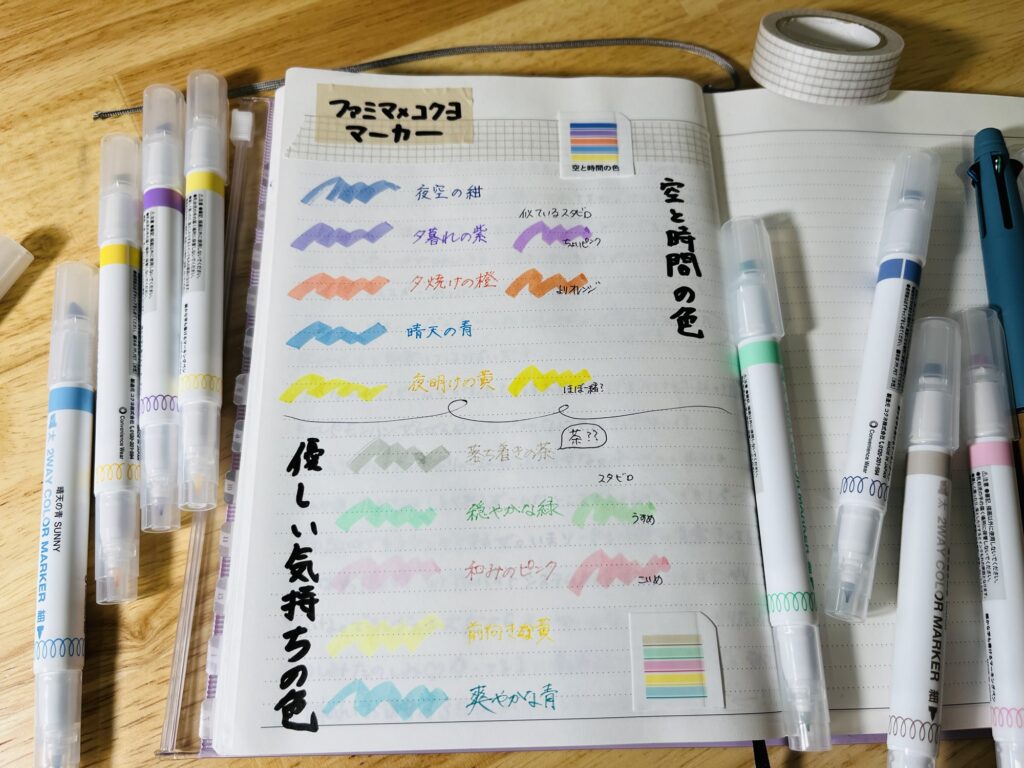 ファミマ×コクヨ
マーカー
空と時間の色
空と時間の色
夜空の紺
似ているスタビロ
夕暮れの紫
ちょいピンク
夕焼けの橙
よりオレンジ
晴天の青
夜明けの黄
ほぼ一緒?
優しい気持ちの色
落ち着きの茶
茶??
スタビロ
穏やかな緑
うすめ
和みのピンク
こいめ
前向きな黄
爽やかな青
太 2WAY COLOR MARKER 細
晴天の青 SUNNY
Convenience Wear
Convenience Wear
2WAY COLOR MARKER 細